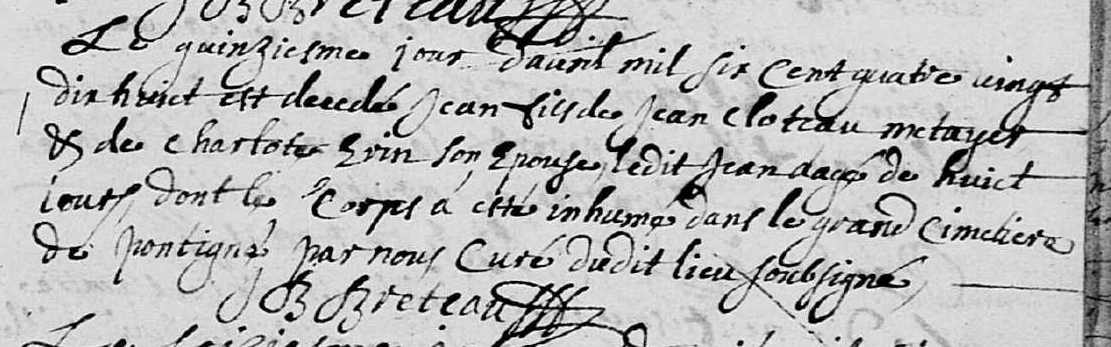 B Breteau
Le quinziesme jour d'auril mil six cent quatre vingt
dix huict est decedé Jean fils de Jean Cloteau metayer
& de Charlote son Epouse, ledit Jean aagé de huict
jours dont le Corps a esté inhumé dans le grand Cimetiere
de pontigné, par nous Curé dudit lieu soubsigné,
B Breteau
Le seiziesme